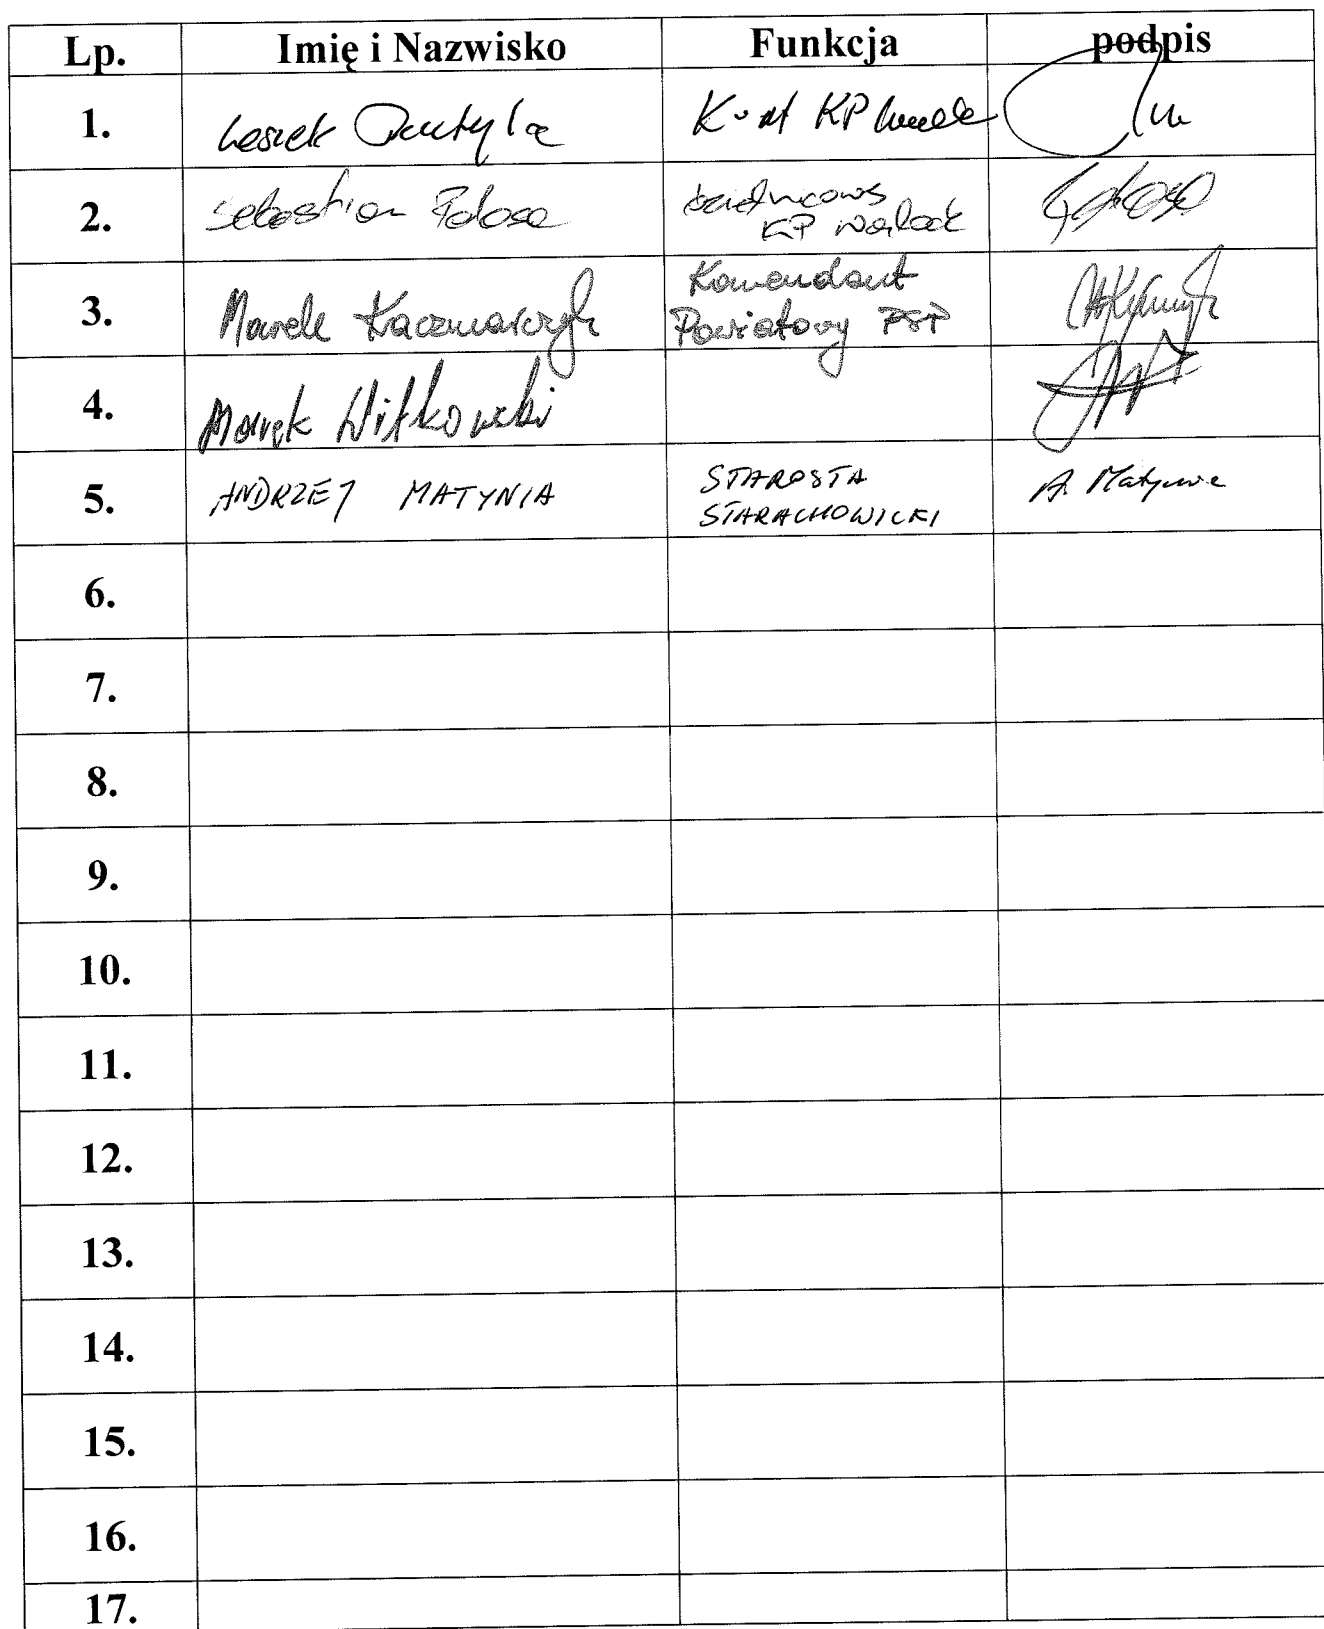 Lp. Imię i Nazwisko Funkcja podpis
1. Leszek K-nt KP
2. Sebastian KP
3. Marek Kaczmarczyk Komendant Powiatowy PSP
4. Marek Witkowski
5. ANDRZEJ MATYNIA STAROSTA STARACHOWICKI A. Matynia
6.
7.
8.
9.
10.
11.
12.
13.
14.
15.
16.
17.